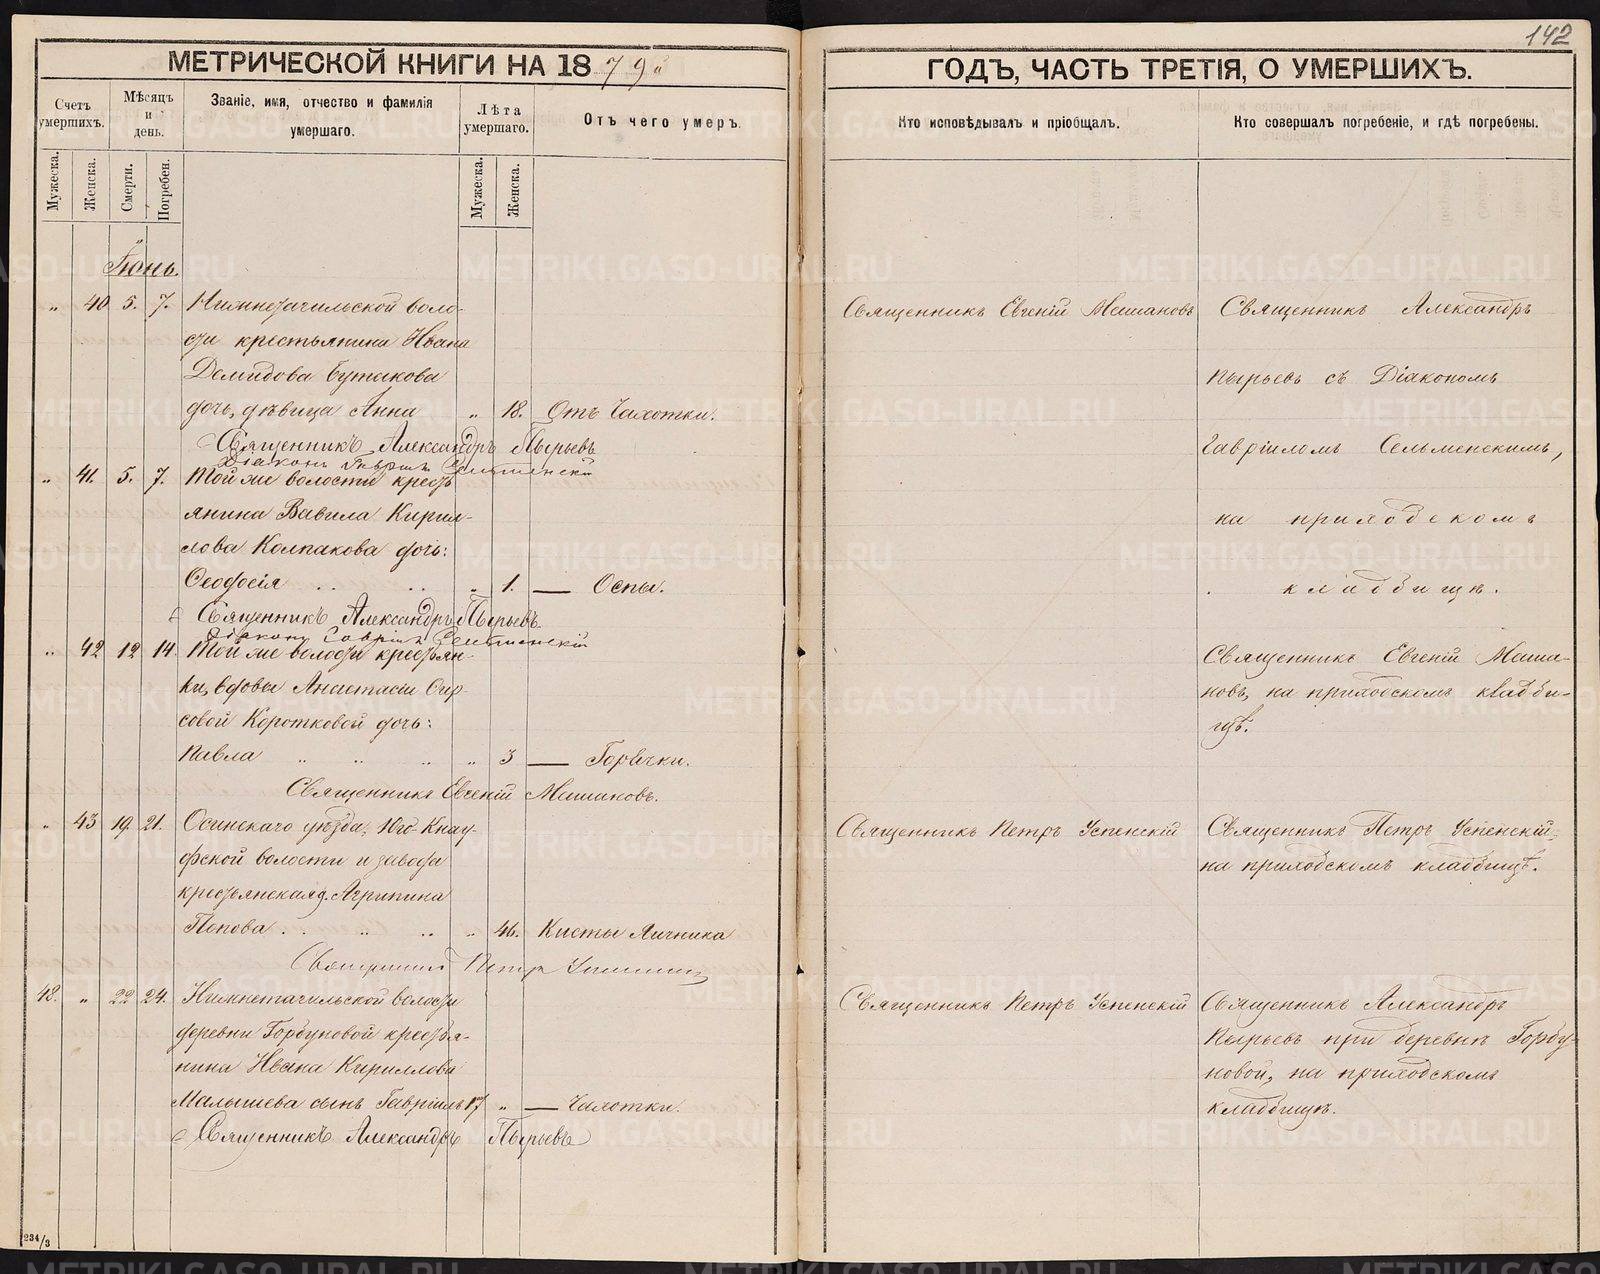 142
МЕТРИЧЕСКОЙ КНИГИ НА 1879й
Счетъ умершихъ.
Мѣсяцъ и день.
Званіе, имя, отчество и фамилія умершаго.
Лѣта умершаго.
Отъ чего умеръ.
Мужеска.
Женска.
Смерти.
Погребен.
Мужеска.
Женска.
Іюнь.
" 40 5. 7. Нижнетагильской воло-
сти крестьянина Ивана
Демидова Бутакова
дочь, дѣвица Анна " 18. Отъ Чахотки.
Священникъ Александръ Пырьевъ
Діаконъ Гавріилъ Сельменскій
" 41. 5. 7. Той же волости кресть
янина Вавила Кирил-
лова Колпакова дочь:
Ѳеодосія " 1. — Оспы.
Священникъ Александръ Пырьевъ.
Діаконъ Гавріилъ Сельменскій
" 42 12 14. Той же волости крестьян-
ки, вдовы Анастасіи
совой Коротковой дочь:
Павла " 3 — Горячки.
Священникъ Евгеній Машановъ.
" 43 19. 21. Осинскаго уѣзда, Юго-Кнау-
фской волости и завода
крестьянская д. Агрипина
Попова " 46. Кисты Яичника
Священникъ Петръ Успенскій
48. " 22 24. Нижнетагильской волости
деревни Горбуновой крестья-
нина Ивана Кириллова
Малышева сынъ Гавріилъ 17 " — Чахотки.
Священникъ Александръ Пырьевъ
234/3
ГОДЪ, ЧАСТЬ ТРЕТІЯ, О УМЕРШИХЪ.
Кто исповѣдывалъ и пріобщалъ.
Кто совершалъ погребеніе, и гдѣ погребены.
Священникъ Евгеній Машановъ
Священникъ Александръ
Пырьевъ съ Діакономъ
Гавріиломъ Сельменскимъ,
на приходскомъ
кладбищѣ.
Священникъ Евгеній Маша-
новъ, на приходскомъ кладби-
щѣ.
Священникъ Петръ Успенскій
Священникъ Петръ Успенскій-
на приходскомъ кладбищѣ.
Священникъ Петръ Успенскій
Священникъ Александръ
Пырьевъ при деревнѣ Горбу-
новой, на приходскомъ
кладбищѣ.
METRIKI.GASO-URAL.RU